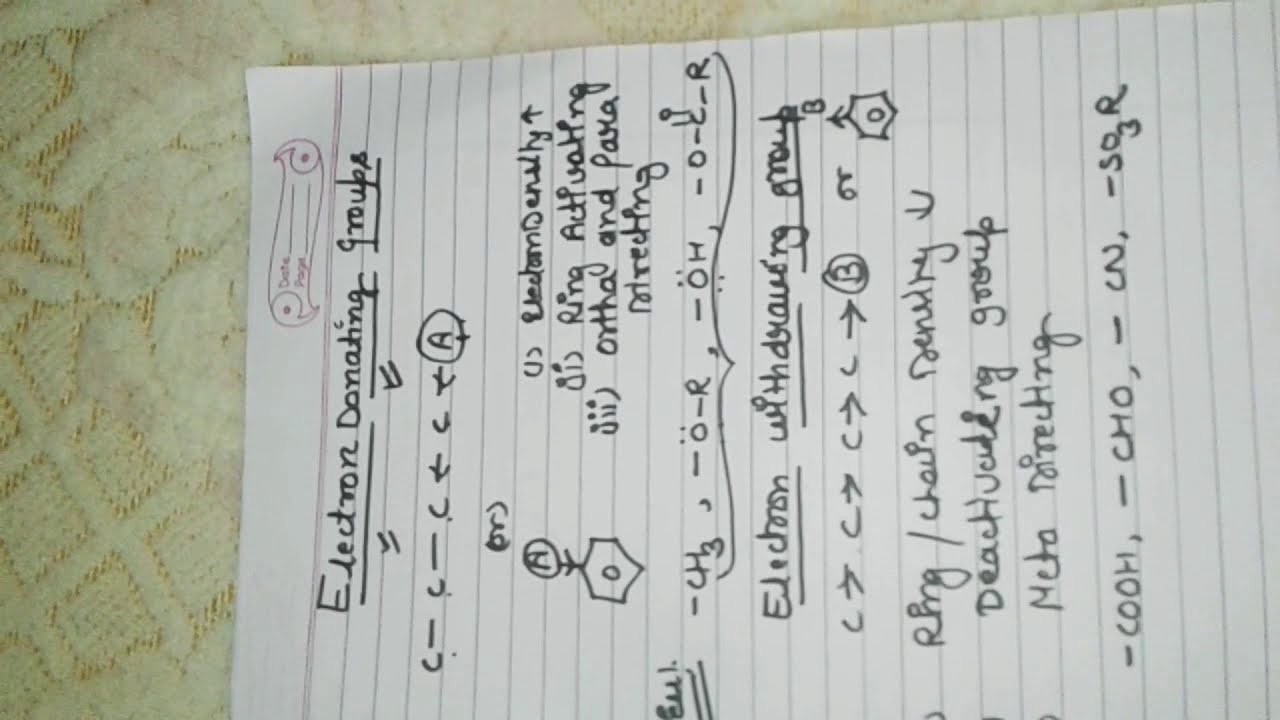 Date
Page
Electron Donating groups
C — C — C ← C ← Ⓐ
(or)
Ⓐ
i) ElectronDensity ↑
ii) Ring Activating
iii) ortha and Para
Directing
-CH₃, -Ö-R, -ÖH, -O-C-R
Electron withdrawing group
C → C → C → C → Ⓑ or
B
Ring / chain Density ↓
Deactivating group
Meta Directing
-COOH, -CHO, -CN, -SO₃R